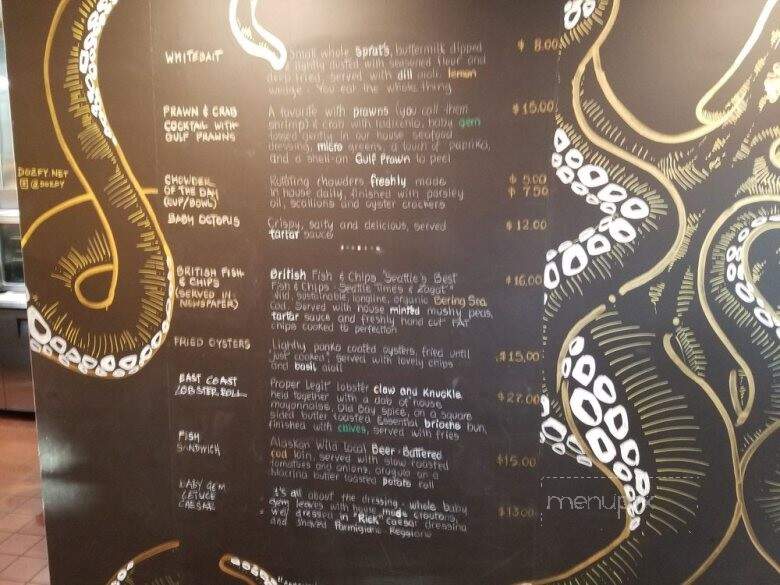 WHITEBAIT
Small whole sprats, buttermilk dipped
lightly dusted with seasoned flour and
deep fried, served with dill aioli lemon
wedge - You eat the whole thing
$ 8.00
PRAWN & CRAB
COCKTAIL WITH
GULF PRAWNS
A favorite with prawns (you call them
shrimp) & crab with radicchio, baby gem
tossed gently in our house seafood
dressing, micro greens, a touch of paprika,
and a shell-on Gulf Prawn to peel
$15.00
CHOWDER
OF THE DAY
(CUP/BOWL)
Rotating chowders freshly made
in house daily, finished with parsley
oil, scallions and oyster crackers
$ 5.00
$ 7.50
BABY OCTOPUS
Crispy, salty and delicious, served
tartar sauce
$12.00
BRITISH FISH
& CHIPS
(SERVED IN
NEWSPAPER)
British Fish & Chips "Seattle's Best
Fish & Chips - Seattle Times & Zagat"
Wild, sustainable, longline, organic Bering Sea
Cod. Served with house minted mushy peas,
tartar sauce and freshly hand cut FAT
chips cooked to perfection
$16.00
FRIED OYSTERS
Lightly panko coated oysters, fried until
"just cooked", served with lovely chips
and basil aioli
$15.00
EAST COAST
LOBSTER ROLL
Proper Legit lobster claw and knuckle
held together with a dab of house
mayonnaise, Old Bay spice, on a square
sided butter toasted Essential brioche bun,
finished with chives, served with fries
$27.00
FISH
SANDWICH
Alaskan Wild Local Beer-Battered
cod loin, served with slow roasted
tomatoes and onions, arugula on a
Macrina butter toasted potato roll
$15.00
BABY GEM
LETUCE
CAESAR
It's all about the dressing - whole baby
gem leaves with house made croutons,
well dressed in "Rick" Caesar dressing
and shaved Parmigiano Reggiano
$13.00
DOZFY.NET
@DOZFY
menupix